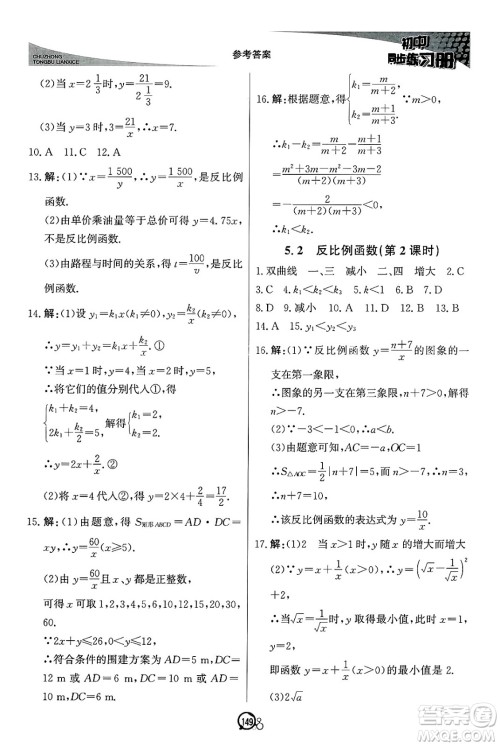 CHUZHONG
TONGBU LIANXICE
参考答案
初中
同步练习册
(2)当 x=2 1/3 时，y=21/(7/3)=9.
(3)当 y=3 时，3=21/x，∴x=7.
10. A 11. C 12. A
13. 解：(1)∵x=1 500/y，∴y=1 500/x，是反比例
函数.
(2)由单价乘油量等于总价，得 y=4.75x，
不是反比例函数.
(3)由路程与时间的关系，得 t=100/v，是反
比例函数.
14. 解：(1)设 y₁=k₁x(k₁≠0)，y₂=k₂/x (k₂≠0)，
∴y=k₁x+k₂/x.
∵当 x=1 时，y=4；当 x=2 时，y=5，
∴将它们的值分别代人①，得
{k₁+k₂=4, 2k₁+k₂/2=5, 解得{k₁=2, k₂=2.
∴y=2x+2/x.②
(2)将 x=4 代人②，得 y=2×4+2/4=8 1/2.
15. 解：(1)由题意，得 S矩形ABCD=AD·DC=
xy，∴y=60/x (x≥5).
(2)由 y=60/x，且 x，y 都是正整数，
∴x 可取 1,2,3,4,5,6,10,12,15,20,30,
60.
∵2x+y≤26，0<y≤12，
∴符合条件的围建方案为 AD=5 m，DC=
12 m 或 AD=6 m，DC=10 m 或 AD=
10 m，DC=6 m.
16. 解：根据题意，得{k₁=m/(m+2), k₂=(m-1)/(m+3). ∵m>0，
∴k₁-k₂=m/(m+2)-(m-1)/(m+3)=
(m²+3m-m²-m+2)/((m+2)(m+3))=
(2m+2)/((m+2)(m+3))>0.
∴k₁>k₂.
5.2 反比例函数(第 2 课时)
1. 双曲线 一、三 减小 二、四 增大 2. C
3. C 4. k₁<k₂<k₃
14. A 15. y₂<y₁<y₃
16. 解：(1)∵反比例函数 y=(n+7)/x 的图象的一
支在第一象限，
∴图象的另一支在第三象限，n+7>0，解得
n>-7.
(2)由图象知，a+5>b+5，∴a<b.
(3)由题意可知，AB=OC，
∴S△AOC=1/2|n+7|=5，解得 n=3.
∴该反比例函数的表达式为 y=10/x.
17. 解：(1)2 当 x>1 时，y 随 x 的增大而增大
(2)∵y=x+1/x (x>0)，∴y=(√x-1/√x)²
+2，
∴当 √x=1/√x 时，y 取最小值，此时 x=1，
即函数 y=x+1/x (x>0)的最小值为 2.
(3)2√a
149